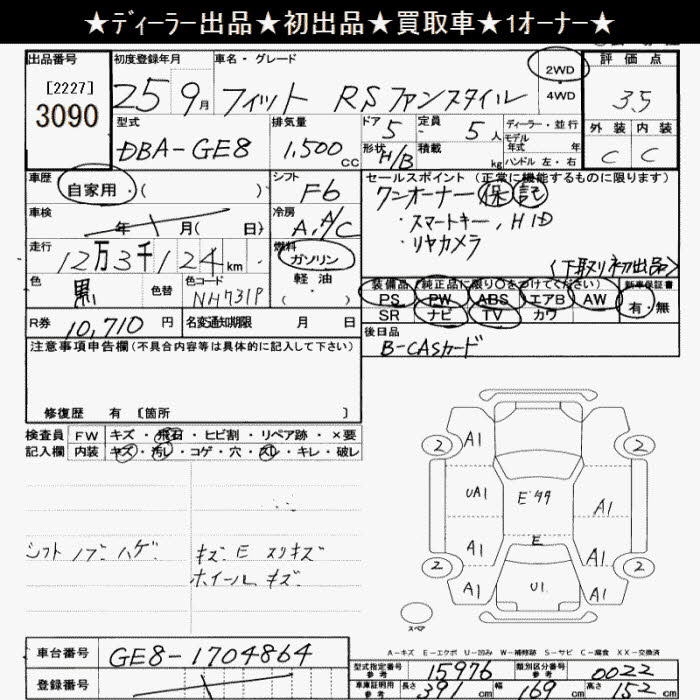 ★ディーラー出品★初出品★買取車★1オーナー★
出品番号 初度登録年月 車名・グレード 2WD 評価点
[2227]
3090 25 9月 フィット RSファンスタイル 4WD 3.5
型式 排気量 ドア 5 定員 5人 ディーラー・並行 外装 内装
DBA-GE8 1,500 CC 形状 H/B 積載 kg モデル年式 年 ハンドル 左・右 C C
車歴 自家用・( ) シフト F6 セールスポイント (正常に機能するものに限ります)
ワンオーナー 保 記
車検 年 月( 日) 冷房 A,A/C ・スマートキー, HID
・リヤカメラ
走行 12万3千124km 燃料 ガソリン 〈下取り初出品〉
色 黒 色替 色コード NH731P 軽油 ・( )
装備品 (純正品に限り○をつけてください) 新車保証書
PS PW ABS エアB AW 有・無
SR ナビ TV カワ
R券 10,710円 名変通知期限 月 日
後日品
B-CASカード
注意事項申告欄(不具合内容等は具体的に記入して下さい)
修復歴 有 〔箇所 〕
検査員 FW キズ・飛石・ヒビ割・リペア跡・×要
記入欄 内装 キズ・汚レ・コゲ・穴・スレ・キレ・破レ
シフトノブハゲ キズ E スリキズ
ホイールキズ
2 A1 2
UA1 E A1
A1 E
2 A1 U1 A1 2
スペア
A-キズ E-エクボ U-凹み W-補修跡 S-サビ C-腐食 XX-交換済
車台番号 GE8-1704864
登録番号
型式指定番号 参考 15976 類別区分番号 参考 0022
車庫証明用 参考 長さ 391cm 幅 169cm 高さ 152cm